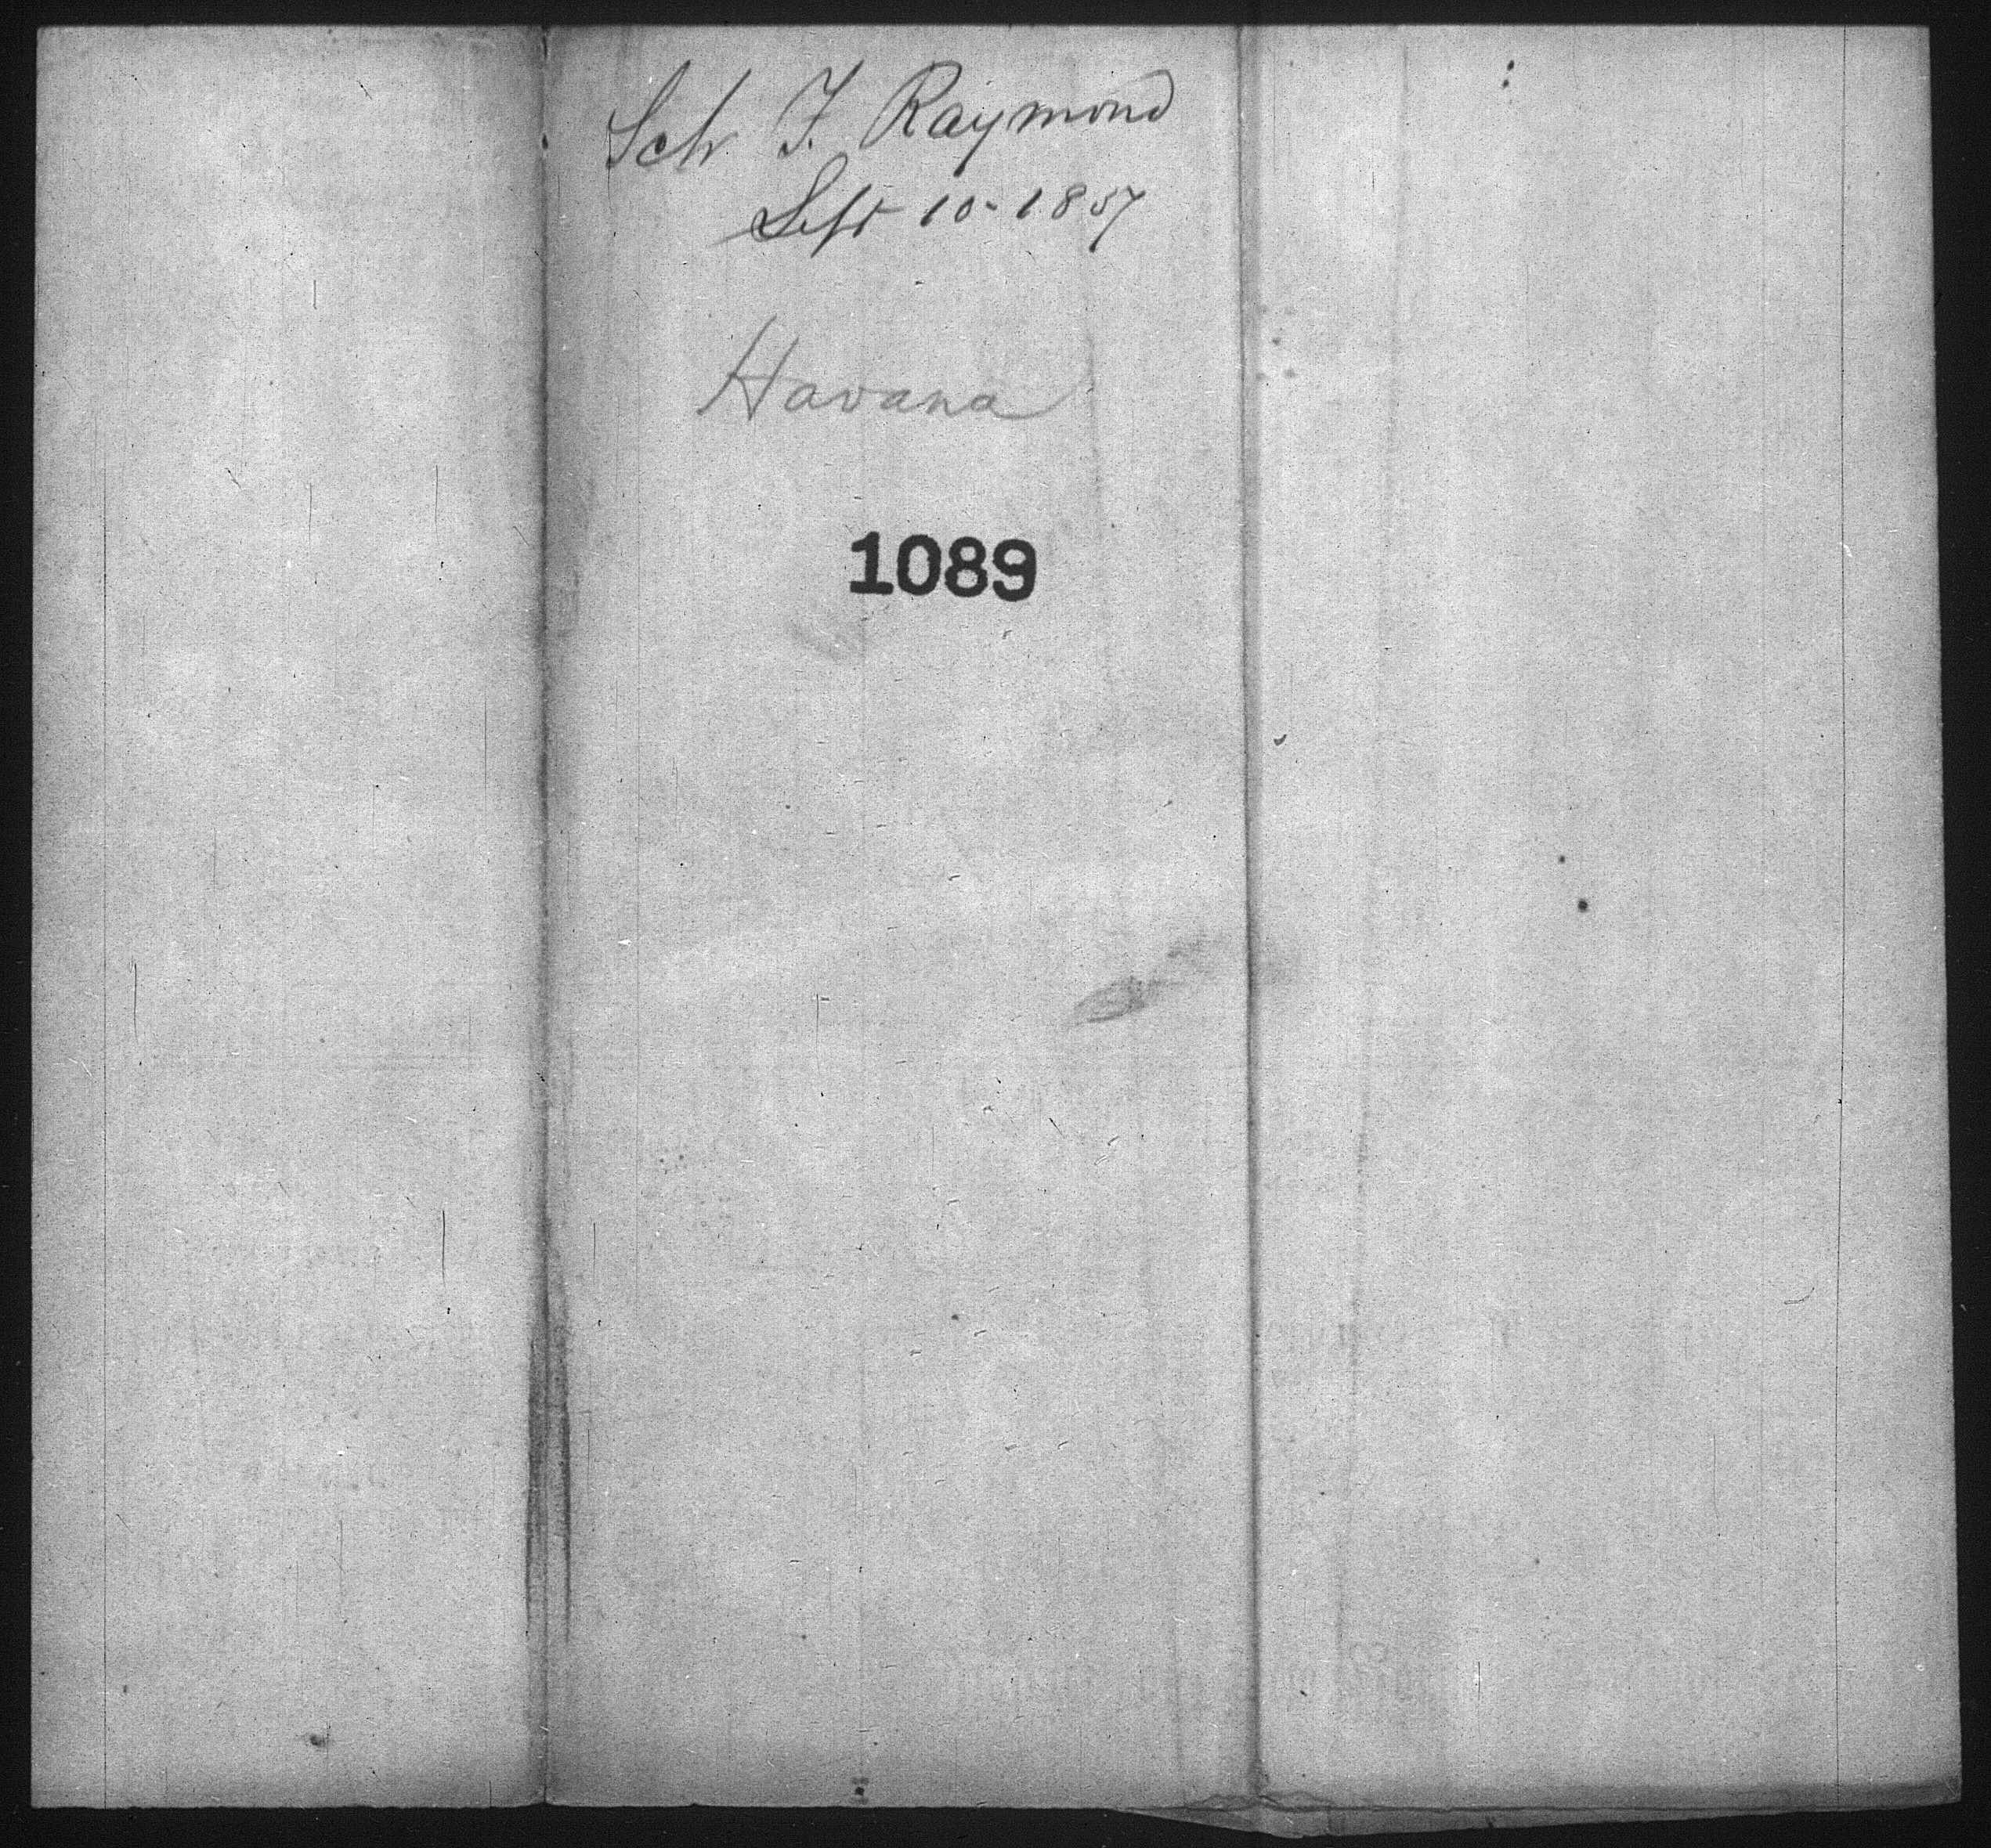 Sch F. Raymond
Sept 10-1857
Havana
1089